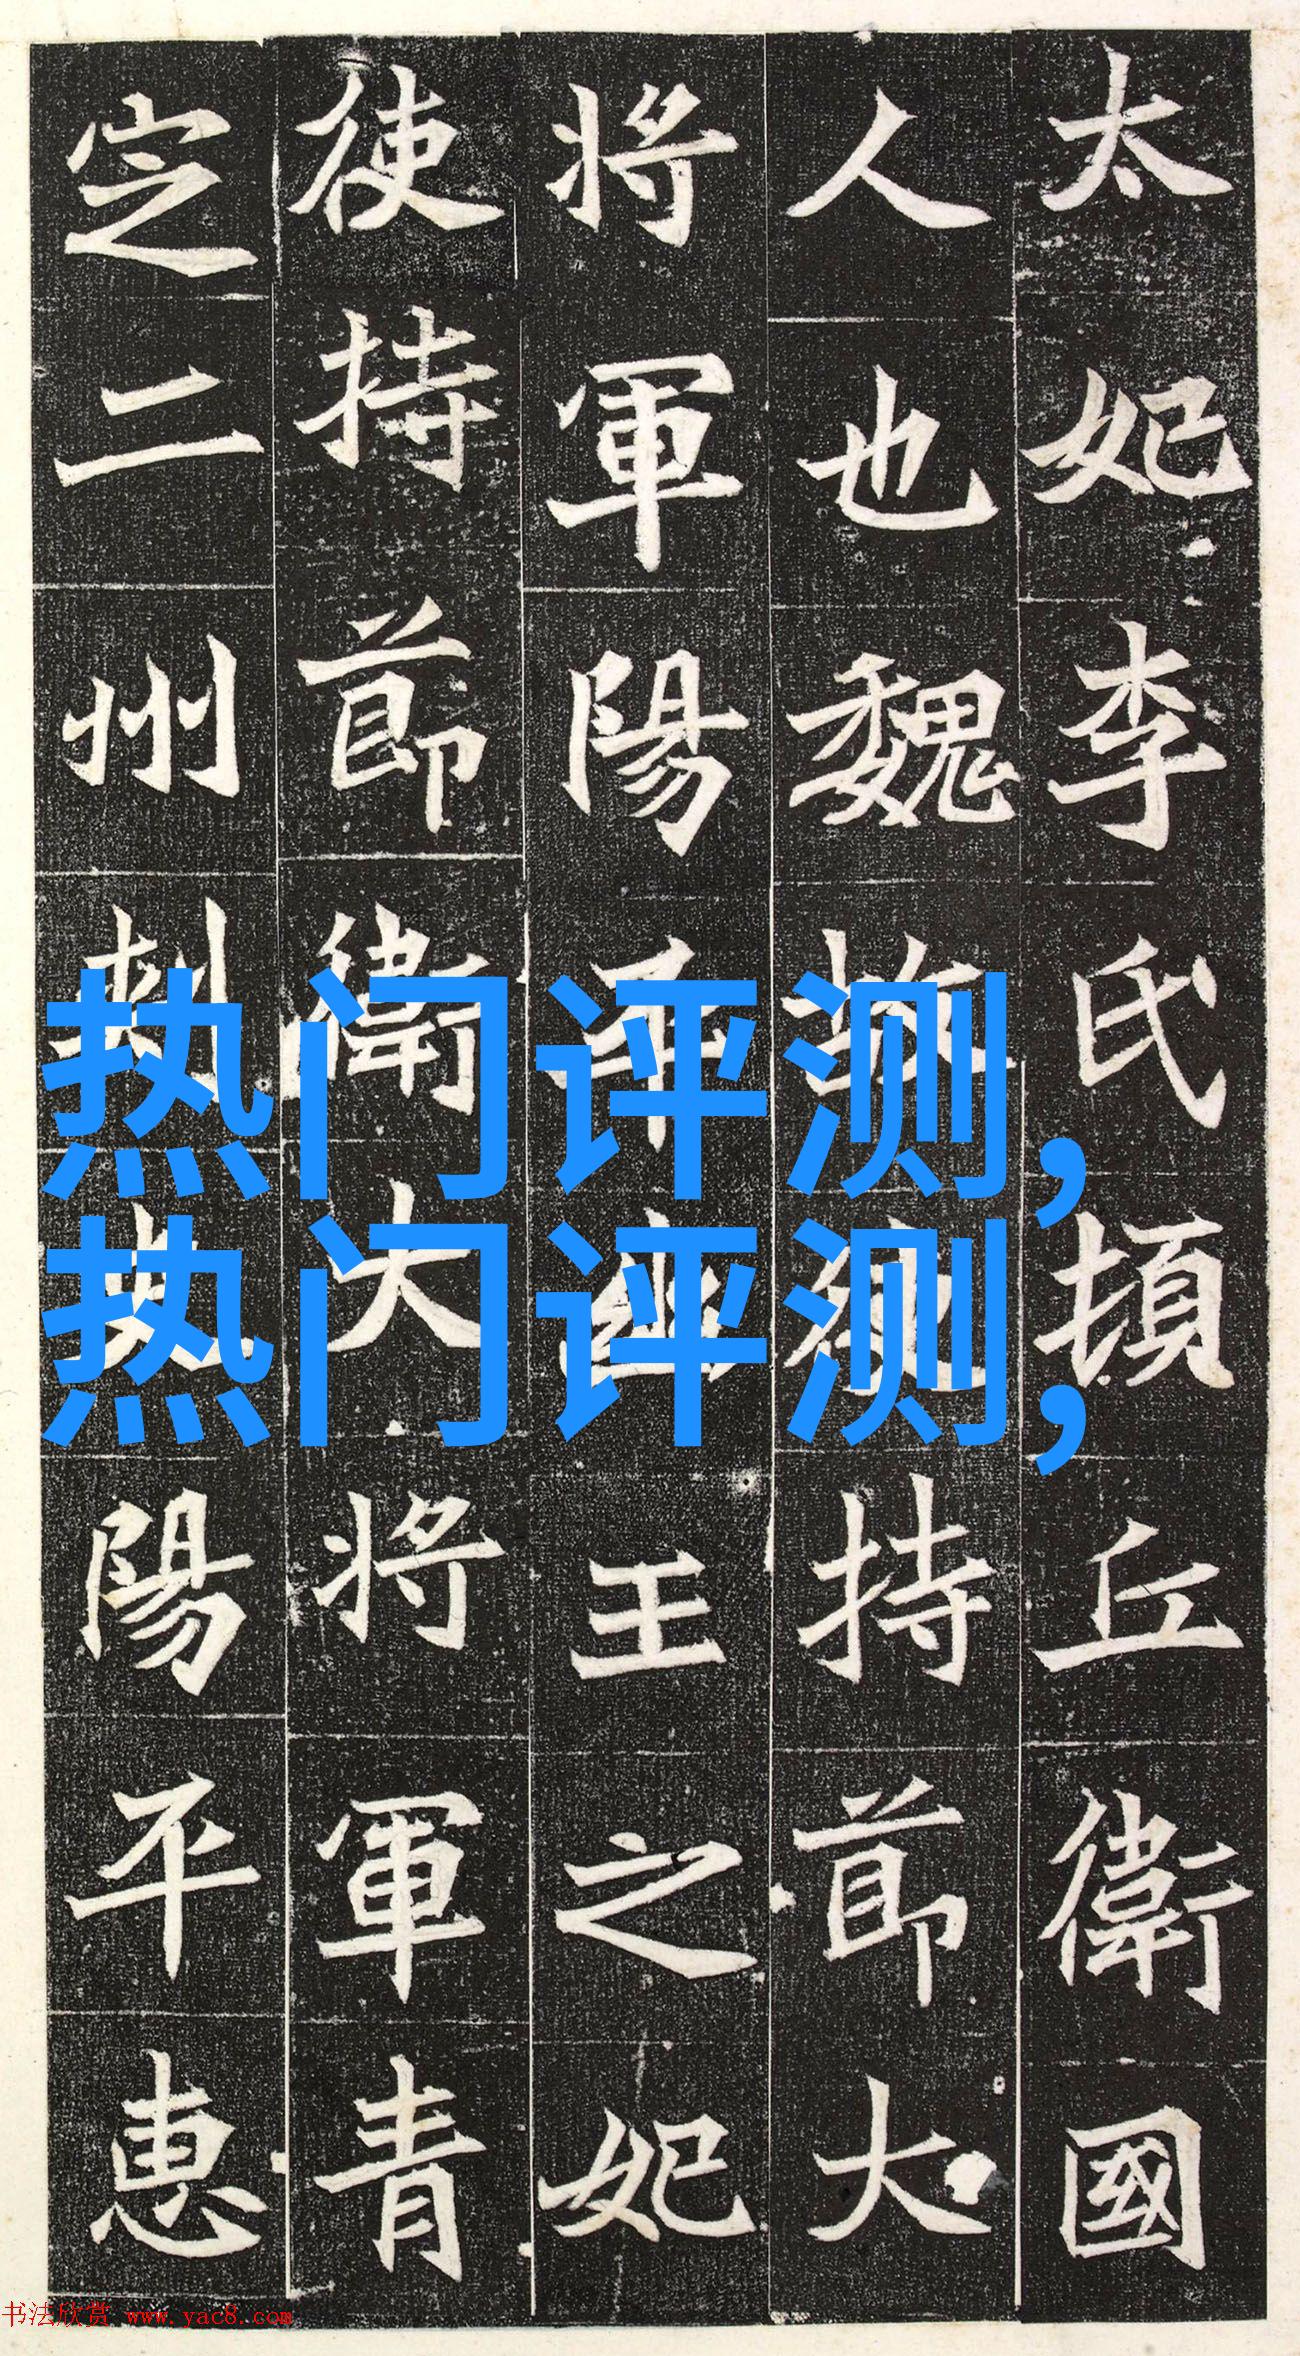 太妃李氏頓丘衛國
人也魏故使持節大
將軍陽平幽王之妃
使持節衛大將軍青
定二州刺史陽平惠
热门评测,
热门评测,
书法欣赏 www.yac8.com